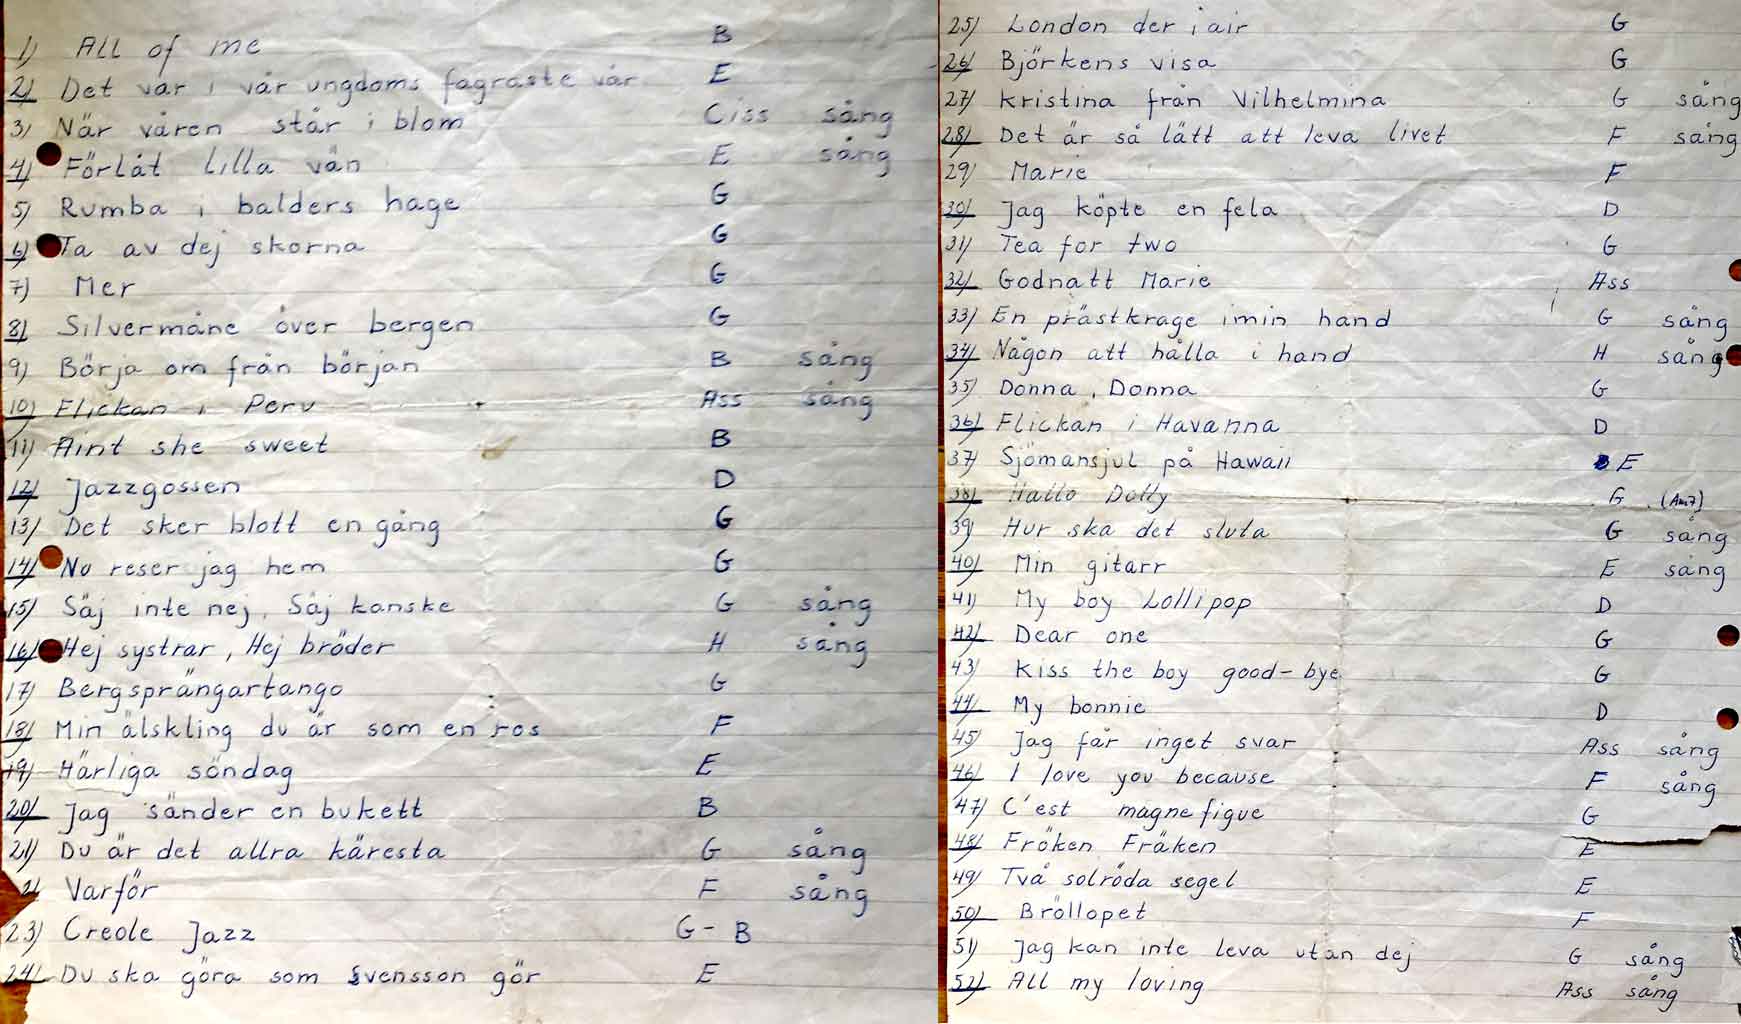 1) All of me B
2) Det var i vår ungdoms fagraste vår E
3) När våren står i blom Ciss sång
4) Förlåt lilla vän E sång
5) Rumba i balders hage G
6) Ta av dej skorna G
7) Mer G
8) Silvermåne över bergen G
9) Börja om från början B sång
10) Flickan i Peru Ass sång
11) Aint she sweet B
12) Jazzgossen D
13) Det sker blott en gång G
14) Nu reser jag hem G
15) Säj inte nej, Säj kanske G sång
16) Hej systrar, Hej bröder H sång
17) Bergsprängartango G
18) Min älskling du är som en ros F
19) Härliga söndag E
20) Jag sänder en bukett B
21) Du är det allra käresta G sång
2) Varför F sång
23) Creole Jazz G - B
24) Du ska göra som svensson gör E
25) London der i air G
26) Björkens visa G
27) Kristina från Vilhelmina G sång
28) Det är så lätt att leva livet F sång
29) Marie F
30) Jag köpte en fela D
31) Tea for two G
32) Godnatt Marie Ass
33) En prästkrage i min hand G sång
34) Någon att hålla i hand H sång
35) Donna, Donna G
36) Flickan i Havanna D
37) Sjömansjul på Hawaii E
38) Hallo Dolly G (Am7)
39) Hur ska det sluta G sång
40) Min gitarr E sång
41) My boy Lollipop D
42) Dear one G
43) Kiss the boy good-bye G
44) My bonnie D
45) Jag får inget svar Ass sång
46) I love you because F sång
47) C'est magnefigue G
48) Fröken Fräken E
49) Två solröda segel E
50) Bröllopet F
51) Jag kan inte leva utan dej G sång
52) All my loving Ass sång